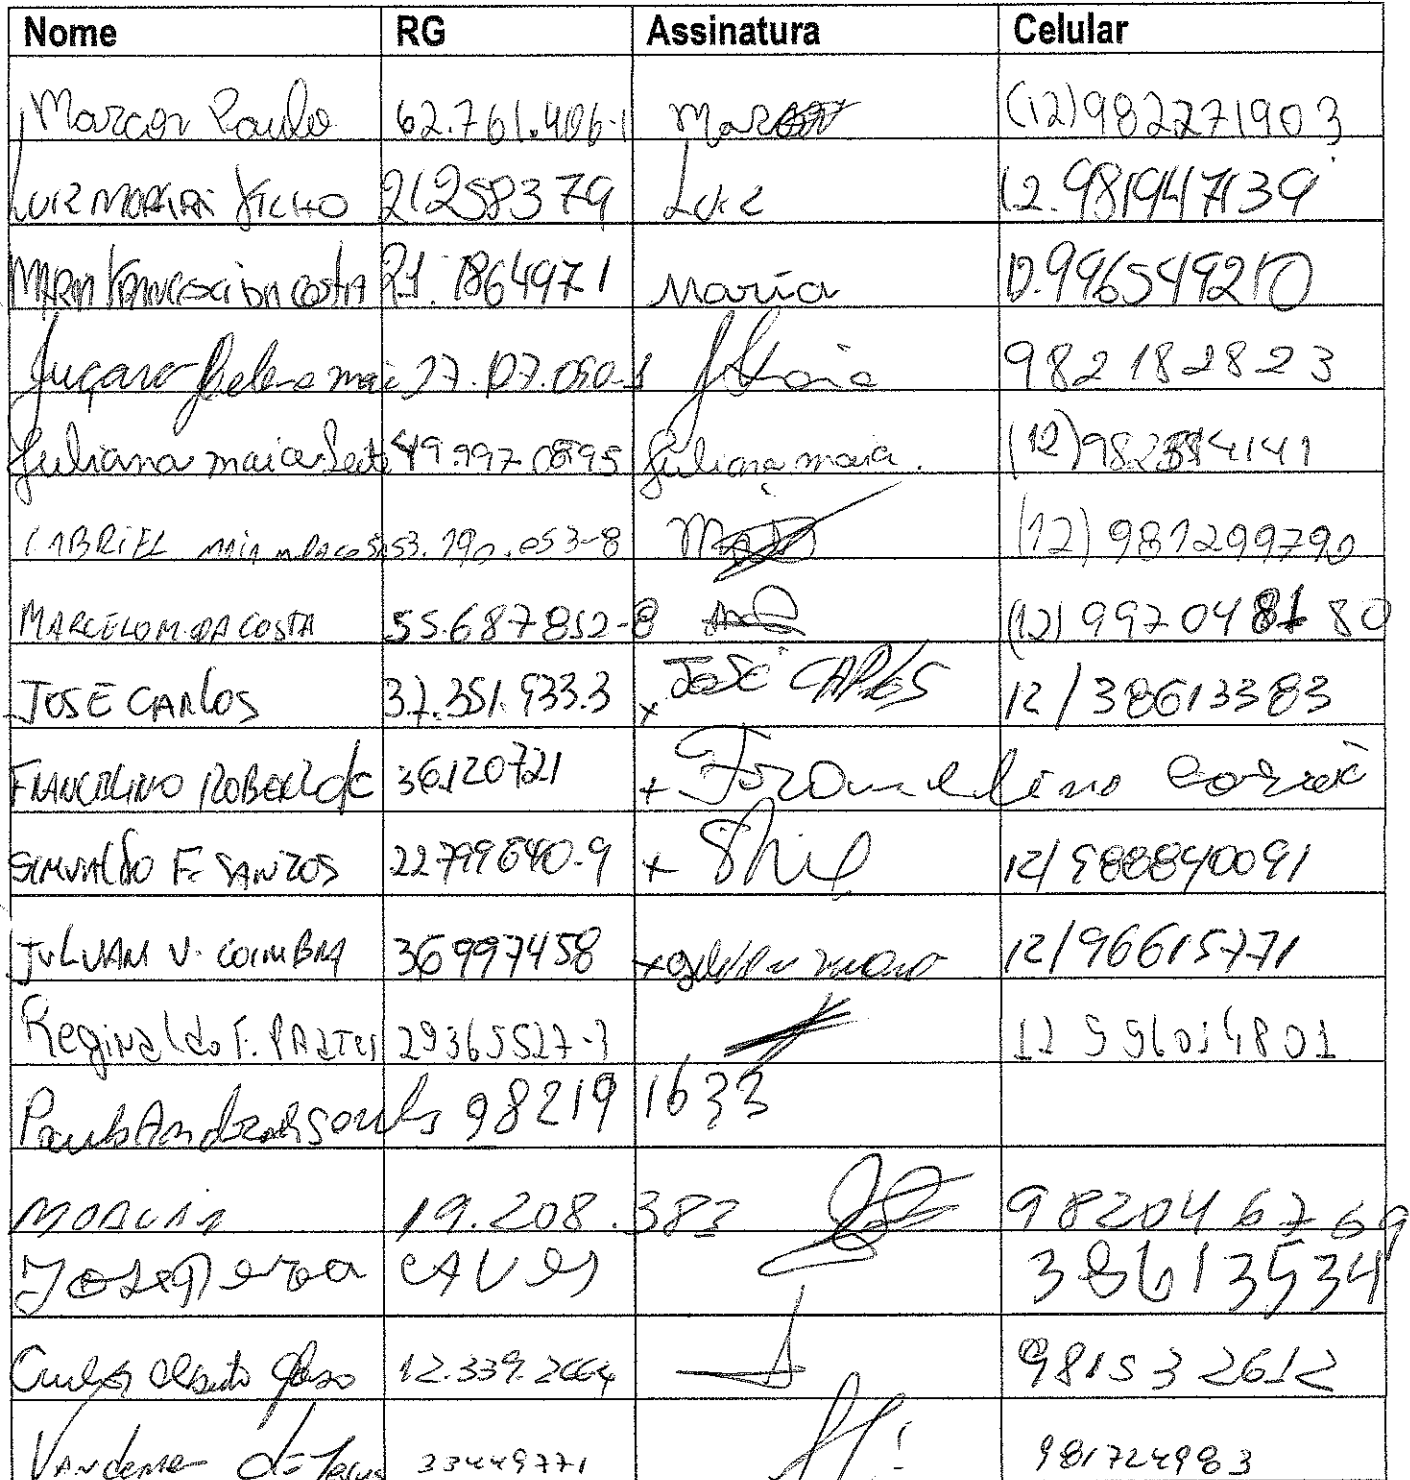 Nome RG Assinatura Celular
Marcos Paulo 62.761.406-1 Marcos (12)982271903
LUIZ MOREIRA FILHO 21258379 Luiz 12.981947139
MARIA FRANCISCA DA COSTA 21.7864971 Maria 12.996549210
Juçara Helena maia 27.107.050-1 Maia 982182823
Juliana maia Leite 49.997.0895 Juliana maia. (12)982314141
GABRIEL MAIA DA COSTA 53.190.053-8 (12)981299790
MARCELO M. DA COSTA 55.687852-8 (12)997048180
JOSE CARLOS 37.351.933.3 x JOSÉ CARLOS 12/38613383
FRANCELINO ROBERTO 36.120721 +
F. SANTOS 22799640-9 + 12/988840091
V. COIMBRA 36997458 + 12/96615771
Reginaldo F. 29365527-3 12 996014801
Paulo 98219 1633
MOACIR 19.208.383 982046769
José ALVES 38613534
Carlos Alberto 12.339.2664 981532612
de Jesus 33449771 981724983